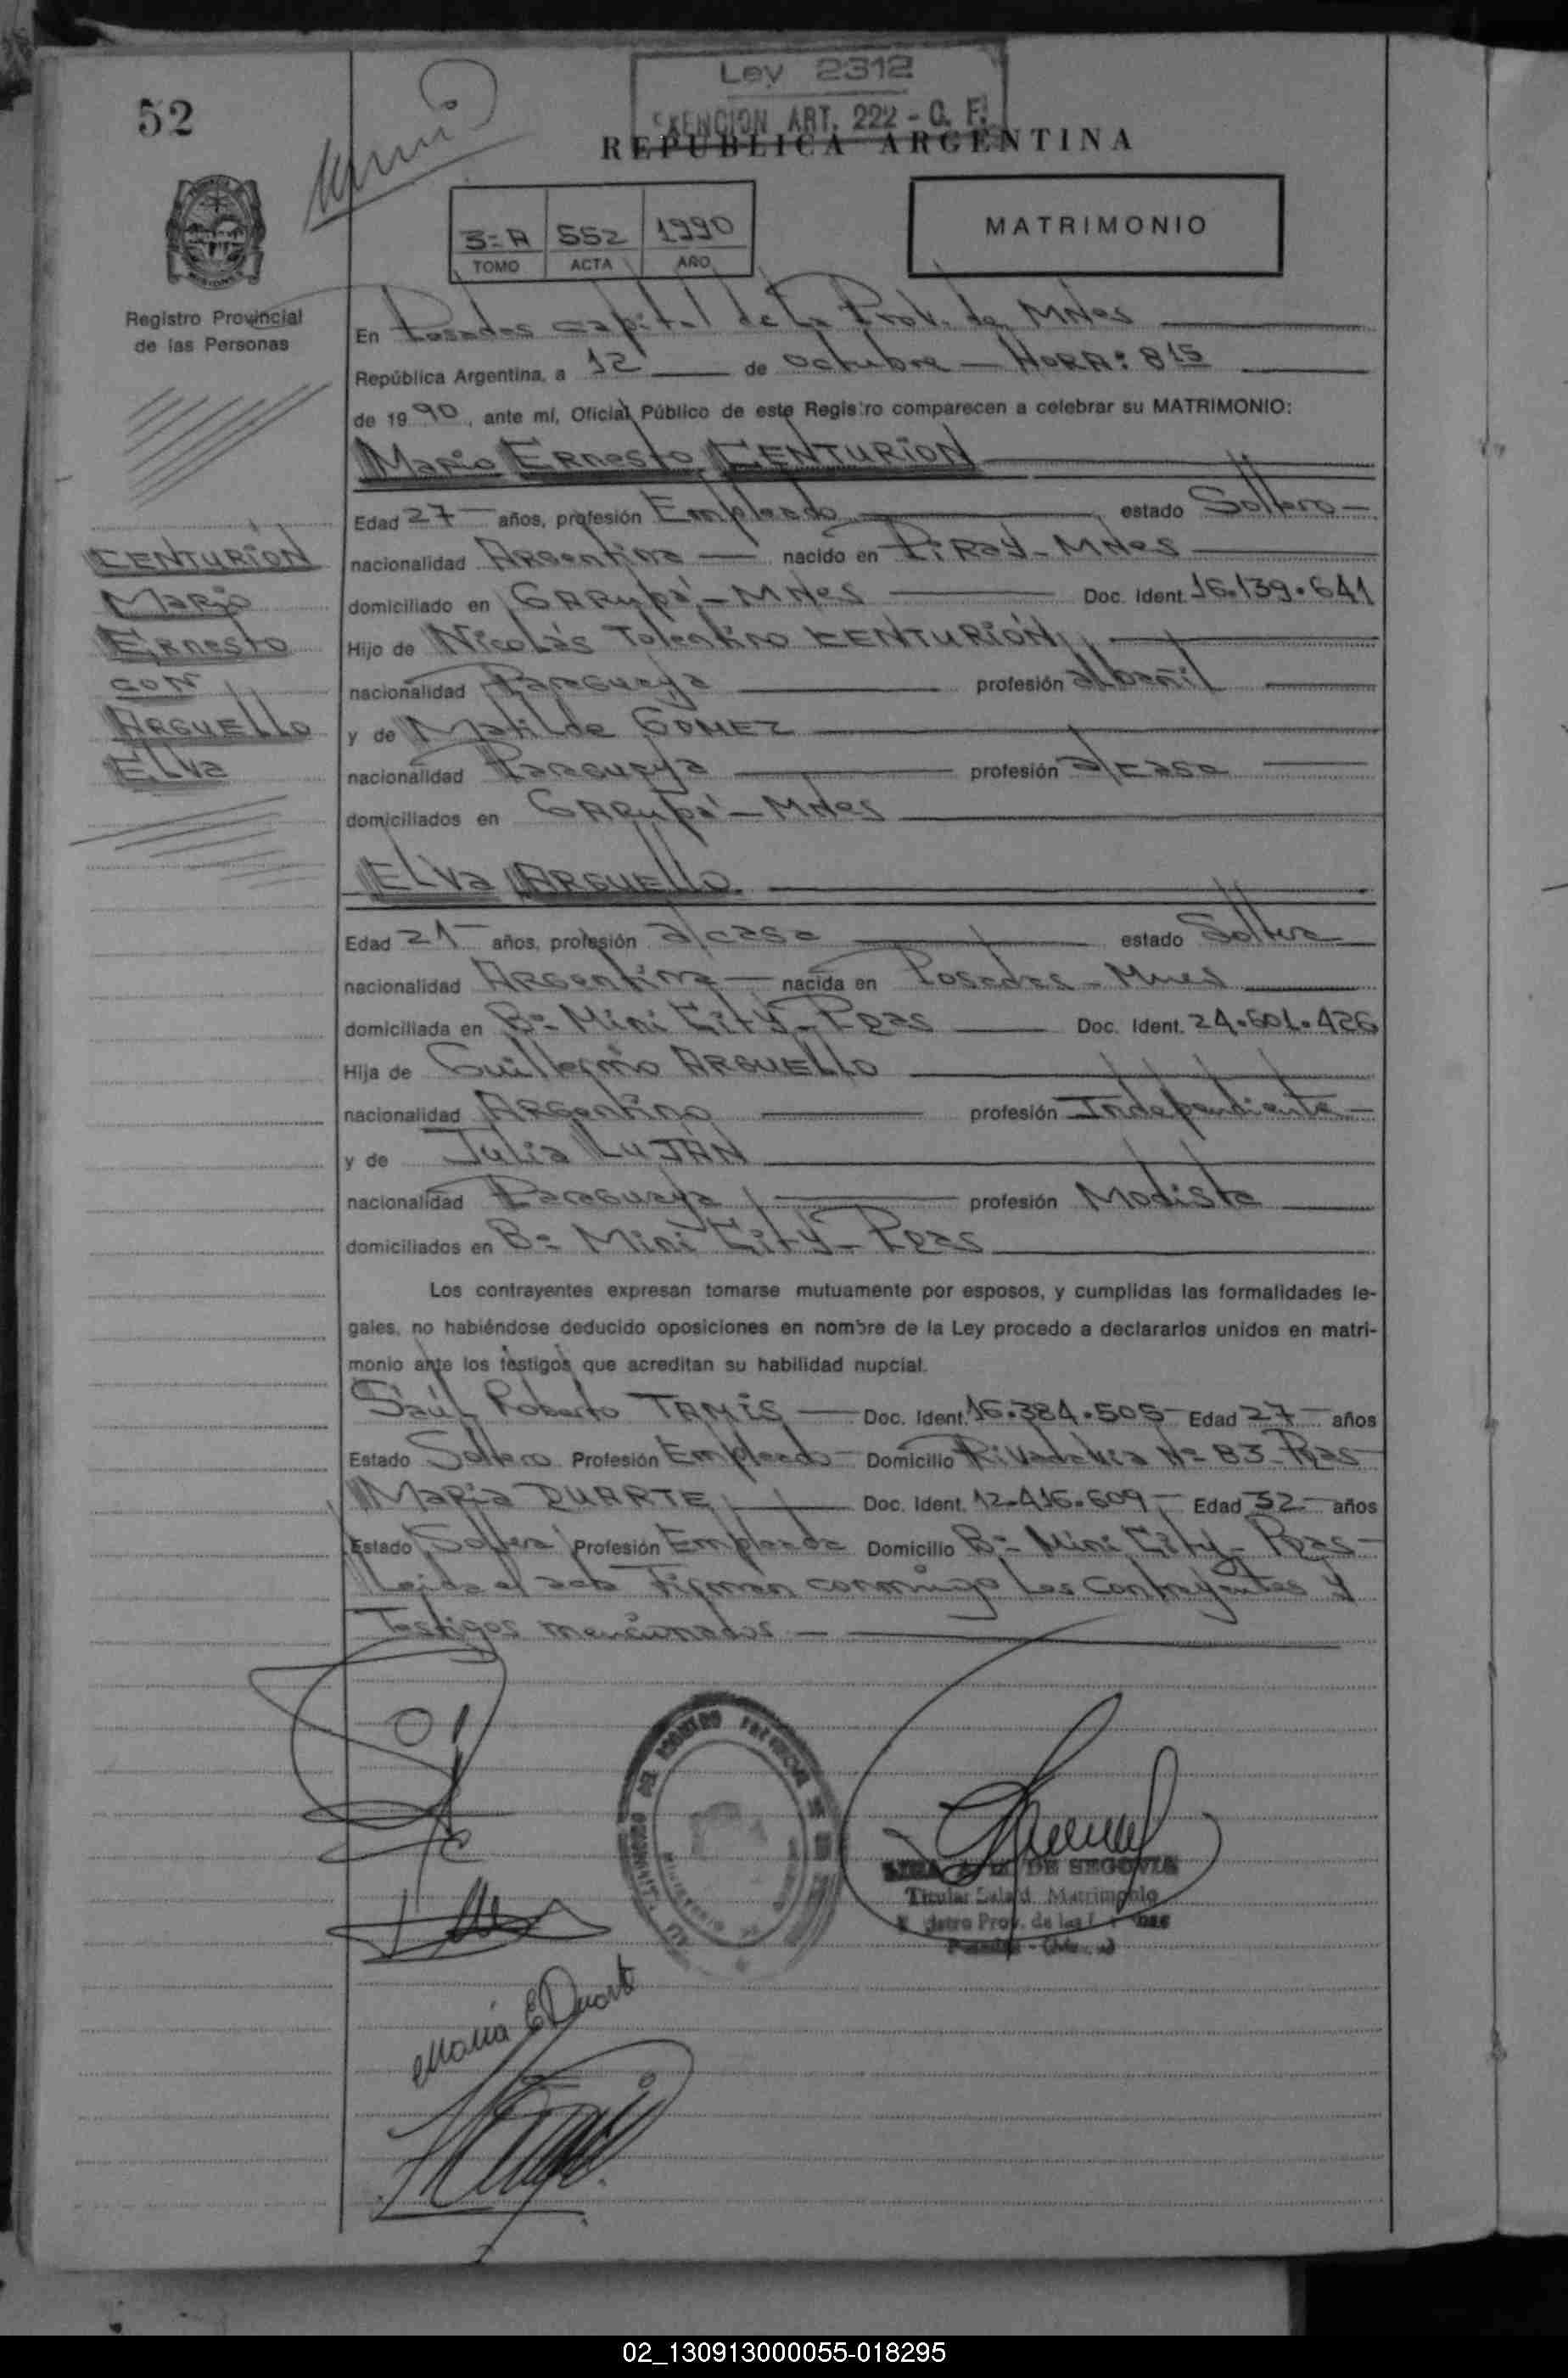 52
Ley 2312
EXENCION ART. 222 - C. F.
REPUBLICA ARGENTINA
3=A 552 1990
TOMO ACTA AÑO
MATRIMONIO
Registro Provincial
de las Personas
En Posadas capital de la Prov. de Mnes
República Argentina, a 12 de octubre - HORA: 8 15
de 1990, ante mí, Oficial Público de este Registro comparecen a celebrar su MATRIMONIO:
Mario Ernesto CENTURION
Edad 27 años, profesión Empleado estado Soltero
nacionalidad Argentina nacido en Piray - Mnes
domiciliado en GARupá - Mnes Doc. Ident. 16.139.641
Hijo de Nicolás Tolentino CENTURIÓN
nacionalidad Paraguaya profesión albañil
y de Matilde GOMEZ
nacionalidad Paraguaya profesión a/casa
domiciliados en GARupá - Mnes
CENTURION
Mario
Ernesto
CON
ARGUELLO
ELVa
ELVa ARGUELLO
Edad 21 años, profesión a/casa estado Soltera
nacionalidad Argentina nacida en Posadas - Mnes
domiciliada en B= Mini City - Pdas Doc. Ident. 24.601.426
Hija de Guillermo ARGUELLO
nacionalidad Argentino profesión Independiente
y de Julia LUJÁN
nacionalidad Paraguaya profesión Modista
domiciliados en B= Mini City - Pdas
Los contrayentes expresan tomarse mutuamente por esposos, y cumplidas las formalidades le-
gales, no habiéndose deducido oposiciones en nombre de la Ley procedo a declararlos unidos en matri-
monio ante los testigos que acreditan su habilidad nupcial.
Saúl Roberto TAMIS Doc. Ident. 16.384.505 Edad 27 años
Estado Soltero Profesión Empleado Domicilio Rivadavia Nº 83 - Pdas
María DUARTE Doc. Ident. 12.416.609 Edad 32 años
Estado Soltera Profesión Empleada Domicilio B= Mini City - Pdas
Leida el acta Firman conmigo los contrayentes y
Testigos mencionados
DE SEGOVIA
Titular Sala d. Matrimonio
Prov. de las
María E Duarte
02_130913000055-018295